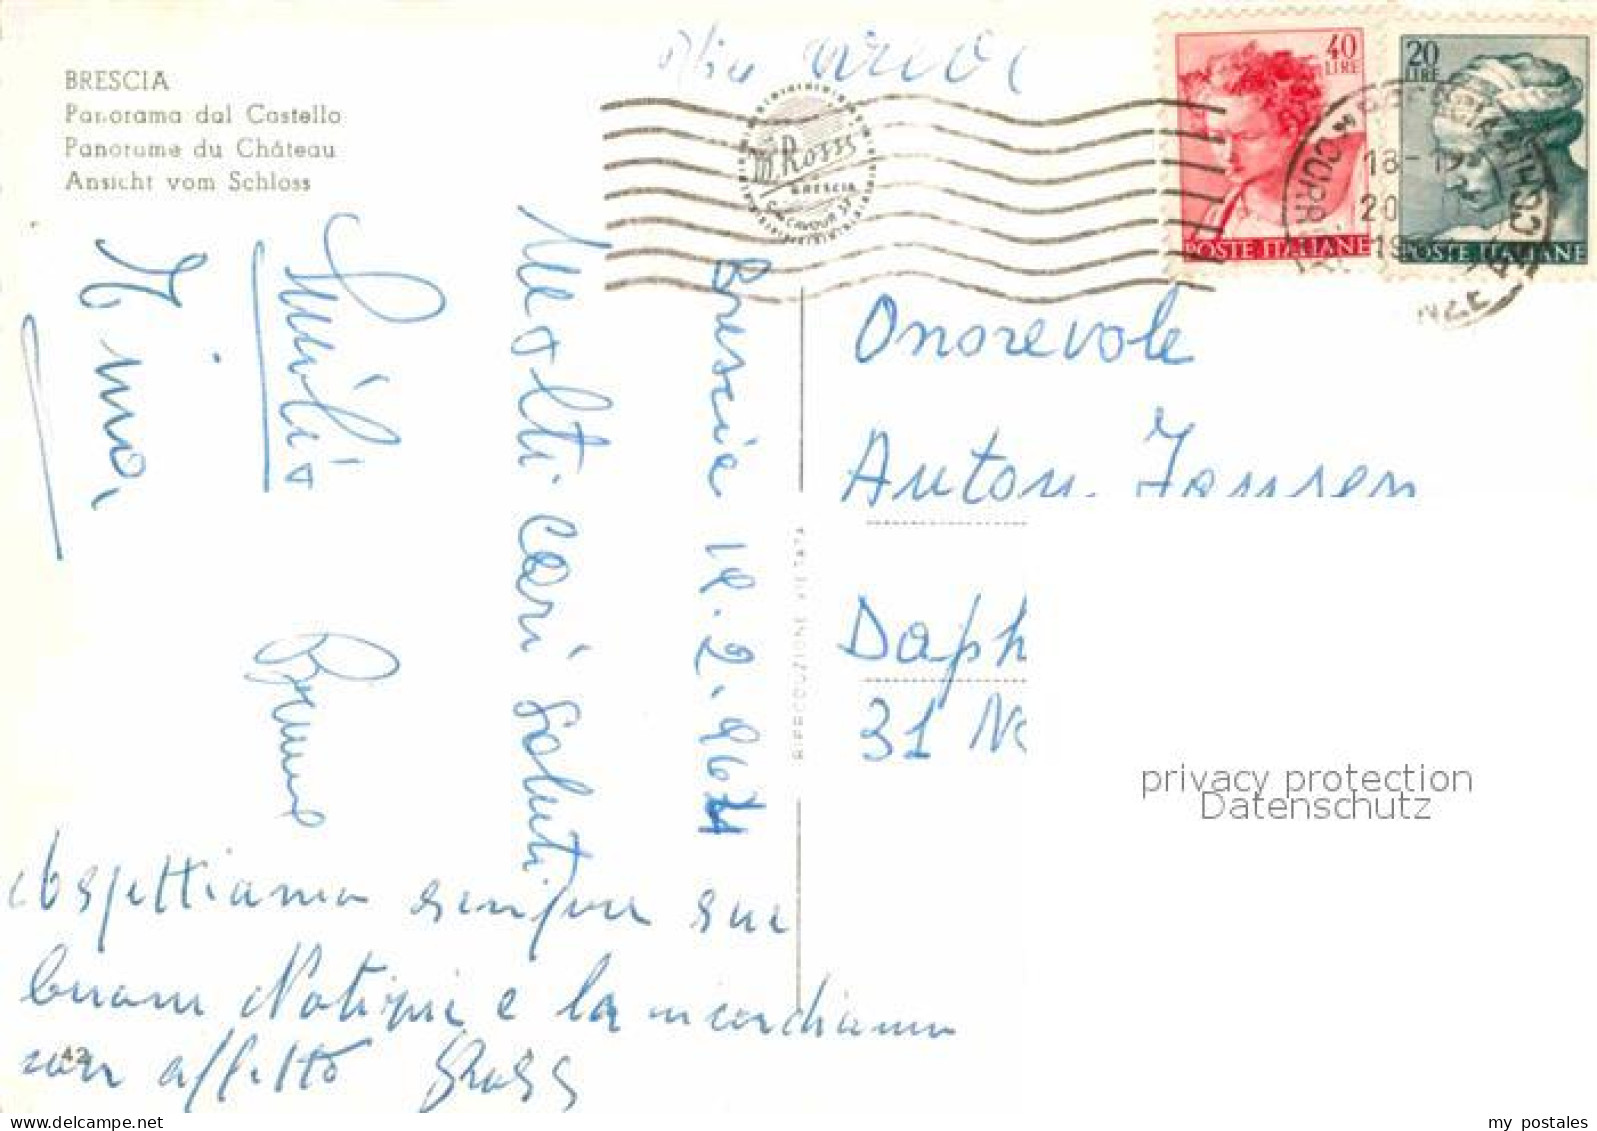 BRESCIA
Panorama dal Castello
Panorame du Château
Ansicht vom Schloss
40
LIRE
POSTE ITALIANE
20
LIRE
POSTE ITALIANE
18-19
20
19
M. Rossi
BRESCIA
C. CAVOUR 37
Brescia 18.2.964
Molti cari saluti.
Bruno
Aspettiamo sempre sue
buone Notizie e la ricordiamo
con affetto
42
RIPRODUZIONE VIETATA
Onorevole
Anton. Jansen
Daph
31 No
privacy protection
Datenschutz
my postales